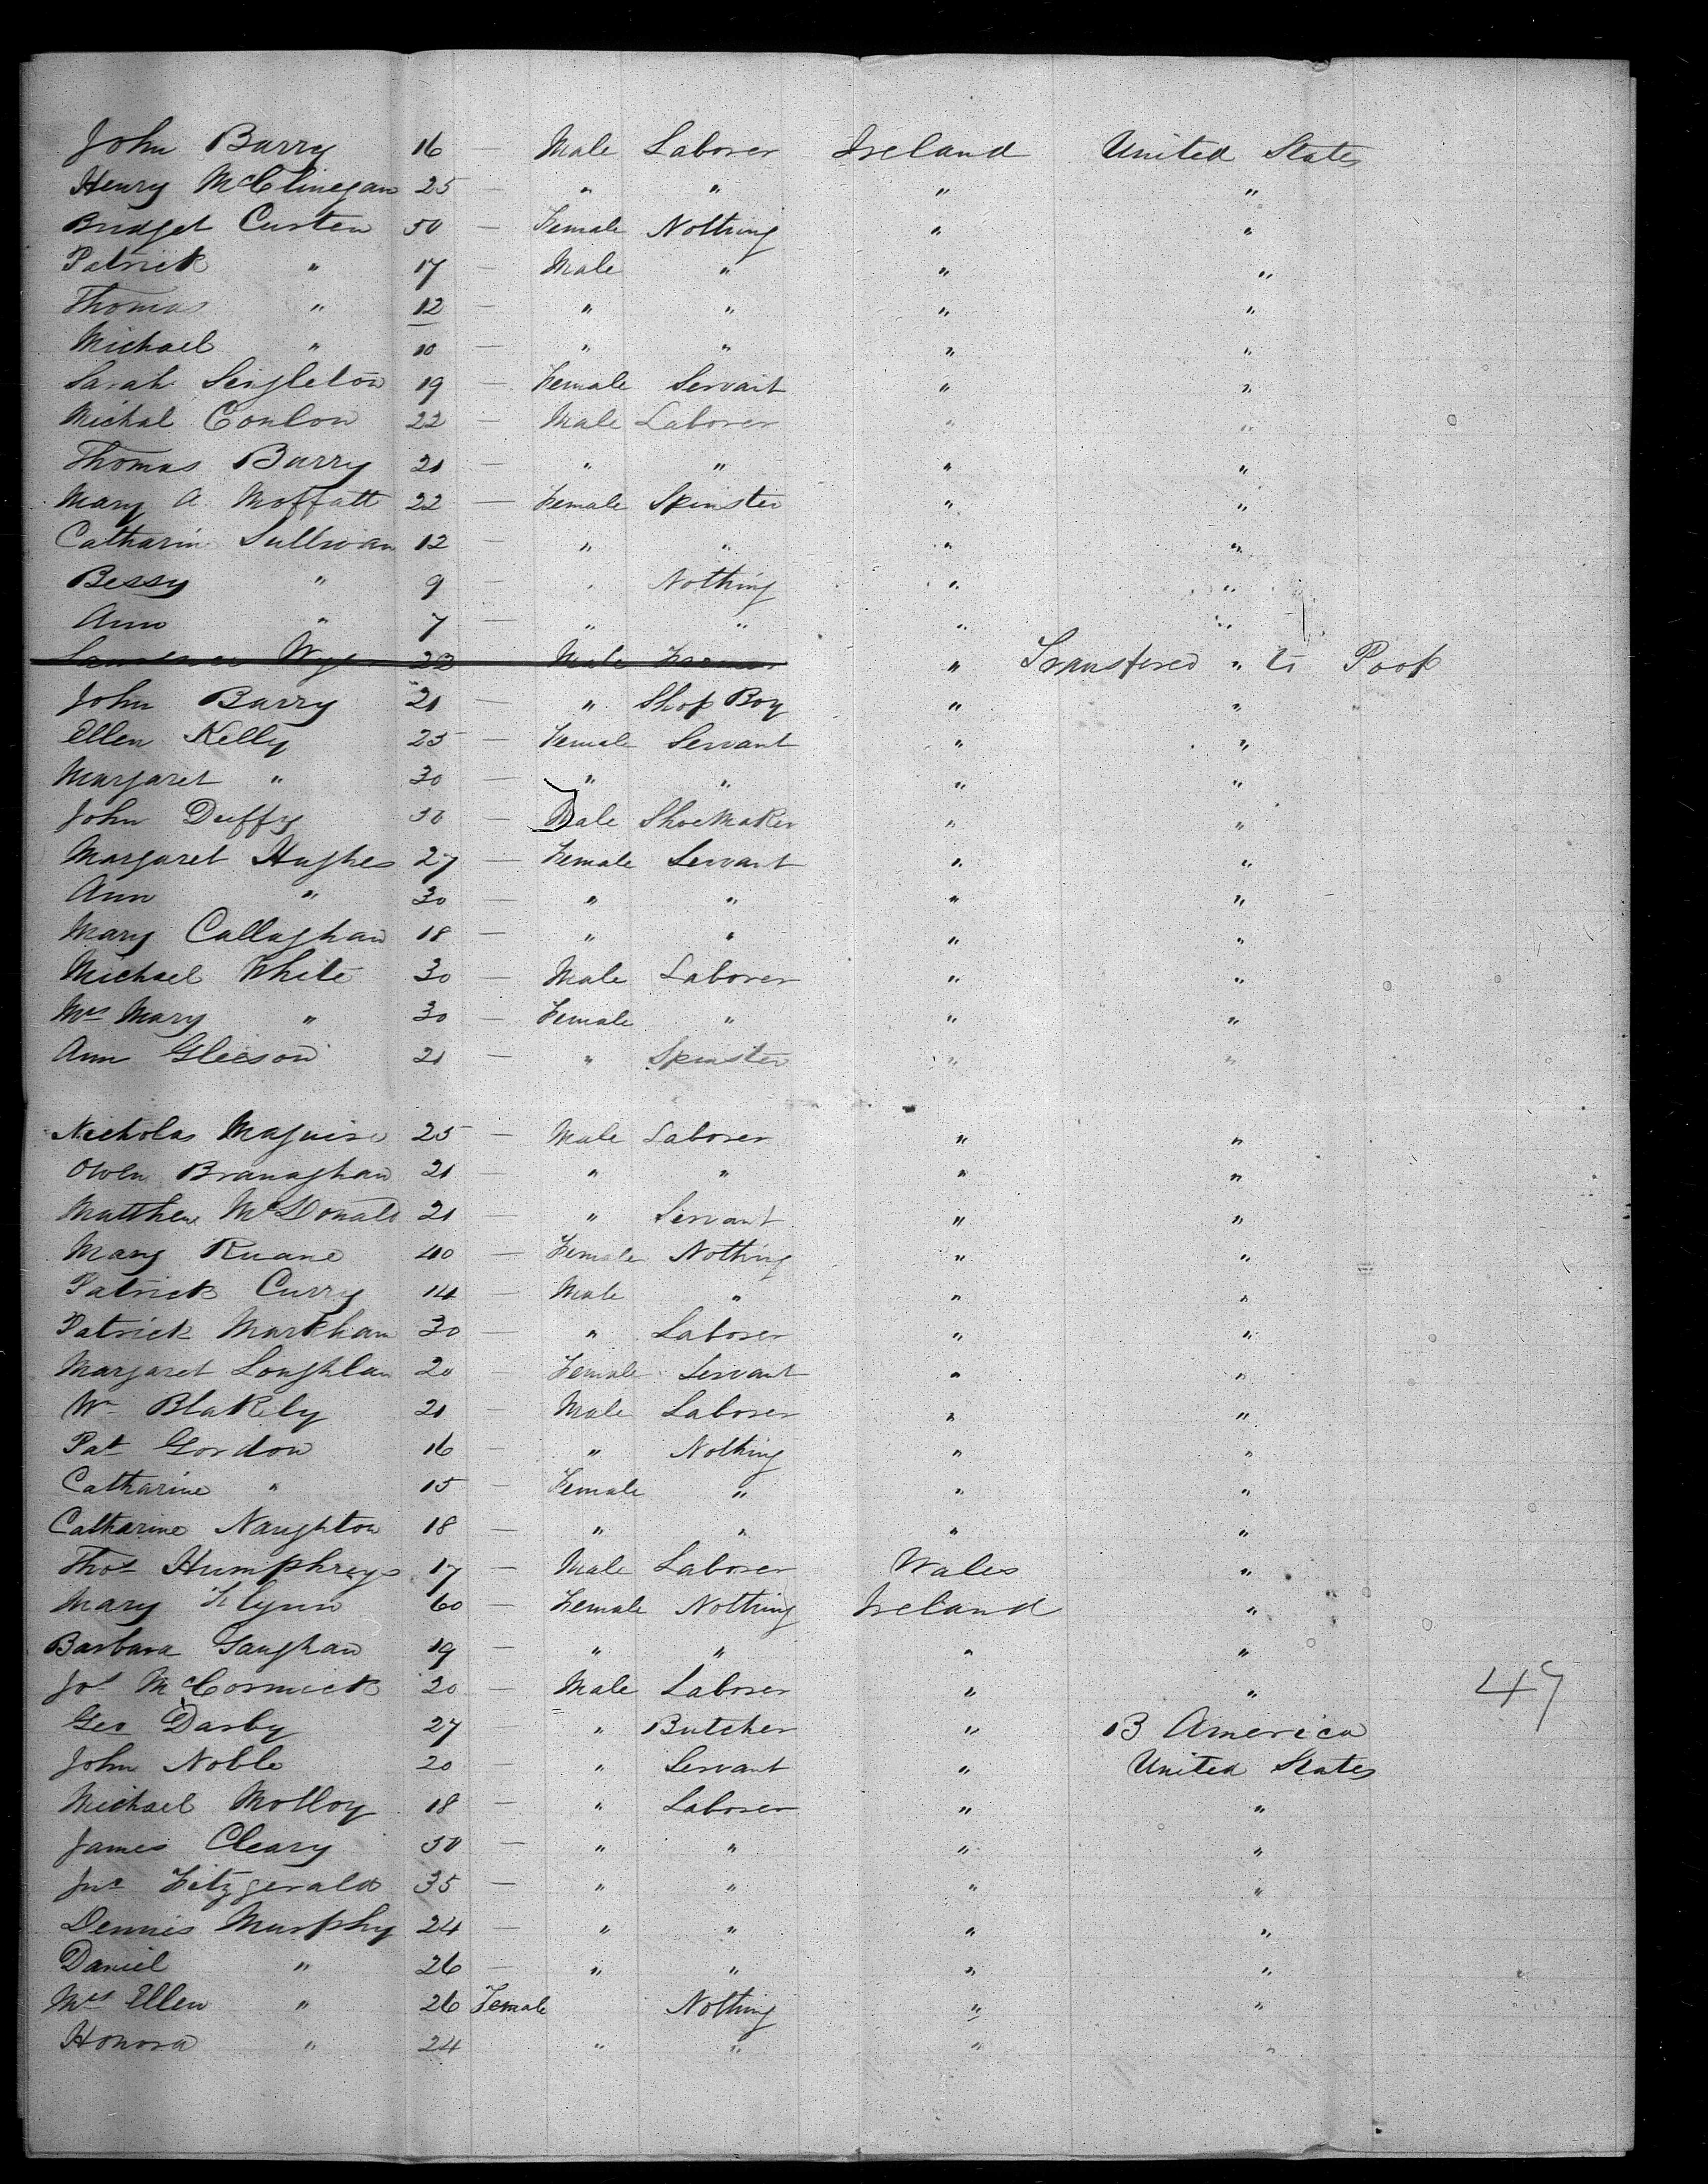 John Barry 16 — Male Laborer Ireland United States
Henry McClinegan 25 — " " " "
Bridget Custen 50 — Female Nothing " "
Patrick " 17 — Male " " "
Thomas " 12 — " " " "
Michael " 10 — " " " "
Sarah Singleton 19 — Female Servant " "
Michal Conlon 22 — Male Laborer " "
Thomas Barry 21 — " " " "
Mary A. Moffatt 22 — Female Spinster " "
Catharin Sullivan 12 — " " " "
Bessy " 9 — " Nothing " "
Ann " 7 — " " " "
Lawrence 23 Male Farmer " Transfered " to Poop
John Barry 21 — " Shop Boy " "
Ellen Kelly 25 — Female Servant " "
Margaret " 30 — " " " "
John Duffy 30 — Male Shoe Maker " "
Margaret Hughes 27 — Female Servant " "
Ann " 30 — " " " "
Mary Callaghan 18 — " " " "
Michael White 30 — Male Laborer " "
Mrs Mary " 30 — Female " " "
Ann Gleeson 21 — " Spinster " "
Nicholas Maguire 25 — Male Laborer " "
Owen Branaghan 21 — " " " "
Matthew McDonald 21 — " Servant " "
Mary Ruane 40 — Female Nothing " "
Patrick Curry 14 — Male " " "
Patrick Markham 30 — " Laborer " "
Margaret Loughlan 20 — Female Servant " "
Wm Blakely 21 — Male Laborer " "
Pat Gordon 16 — " Nothing " "
Catharine " 15 — Female " " "
Catharine Naughton 18 — " " " "
Thos Humphreys 17 — Male Laborer Wales "
Mary Flynn 60 — Female Nothing Ireland "
Barbara Gaughan 19 — " " " "
Jos McCormick 20 — Male Laborer " "
47
Geo Darby 27 — " Butcher " B America
John Noble 20 — " Servant " United States
Michael Molloy 18 — " Laborer " "
James Cleary 50 — " " " "
Jno Fitzgerald 35 — " " " "
Dennis Murphy 24 — " " " "
Daniel " 26 — " " " "
Mrs Ellen " 26 Female Nothing " "
Honora " 24 " " " "